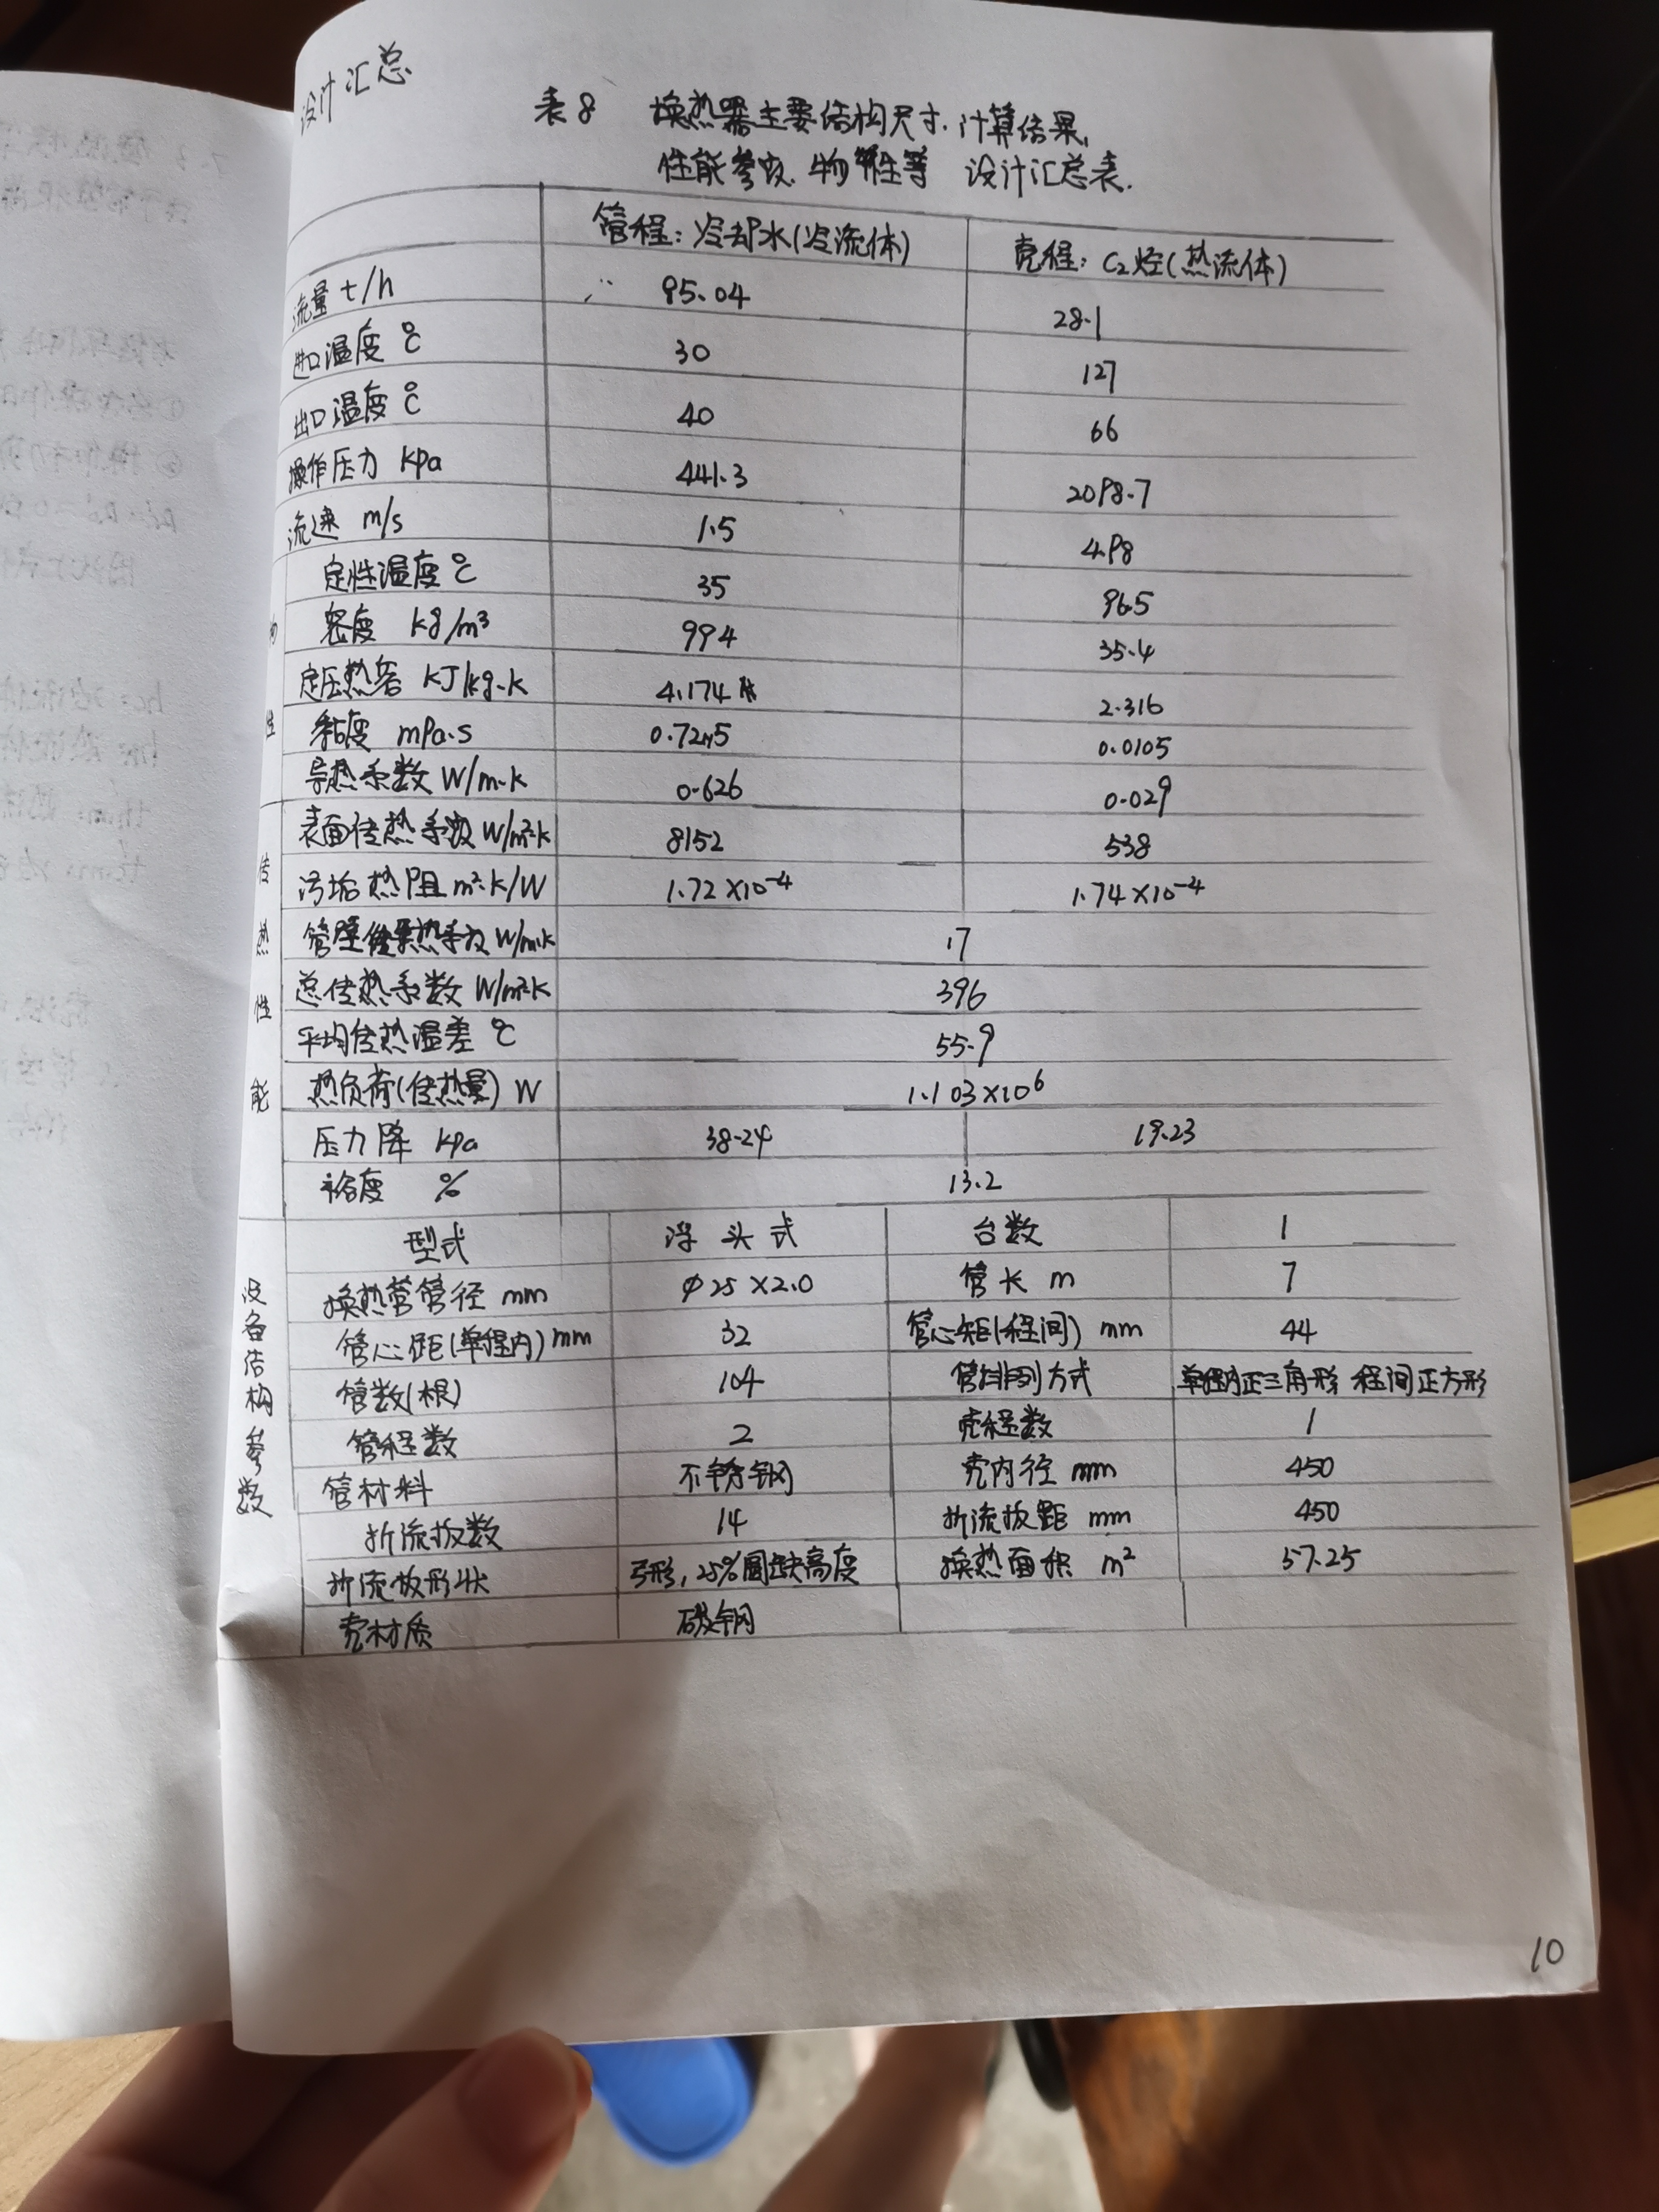 设计汇总
表8 换热器主要结构尺寸.计算结果,
性能参数.物性等 设计汇总表.
管程:冷却水(冷流体) 壳程:C2烃(热流体)
流量 t/h 95.04 28.1
进口温度 ℃ 30 127
出口温度 ℃ 40 66
操作压力 kpa 441.3 2098.7
流速 m/s 1.5 4.98
物性
定性温度 ℃ 35 96.5
密度 kg/m³ 994 35.4
定压热容 kJ/kg.k 4.174 2.316
黏度 mpa.s 0.7275 0.0105
导热系数 W/m.k 0.626 0.029
传热性能
表面传热系数 W/m².k 8152 538
污垢热阻 m².k/W 1.72×10⁻⁴ 1.74×10⁻⁴
管壁导热系数 W/m.k 17
总传热系数 W/m².k 396
平均传热温差 ℃ 55.9
热负荷(传热量) W 1.103×10⁶
压力降 kpa 38.24 19.23
裕度 % 13.2
设备结构参数
型式 浮头式 台数 1
换热管管径 mm φ25×2.0 管长 m 7
管心距(单程内) mm 32 管心矩(程间) mm 44
管数(根) 104 管排列方式 单程内正三角形 程间正方形
管程数 2 壳程数 1
管材料 不锈钢 壳内径 mm 450
折流板数 14 折流板距 mm 450
折流板形状 弓形,25%圆缺高度 换热面积 m² 57.25
壳材质 碳钢
10